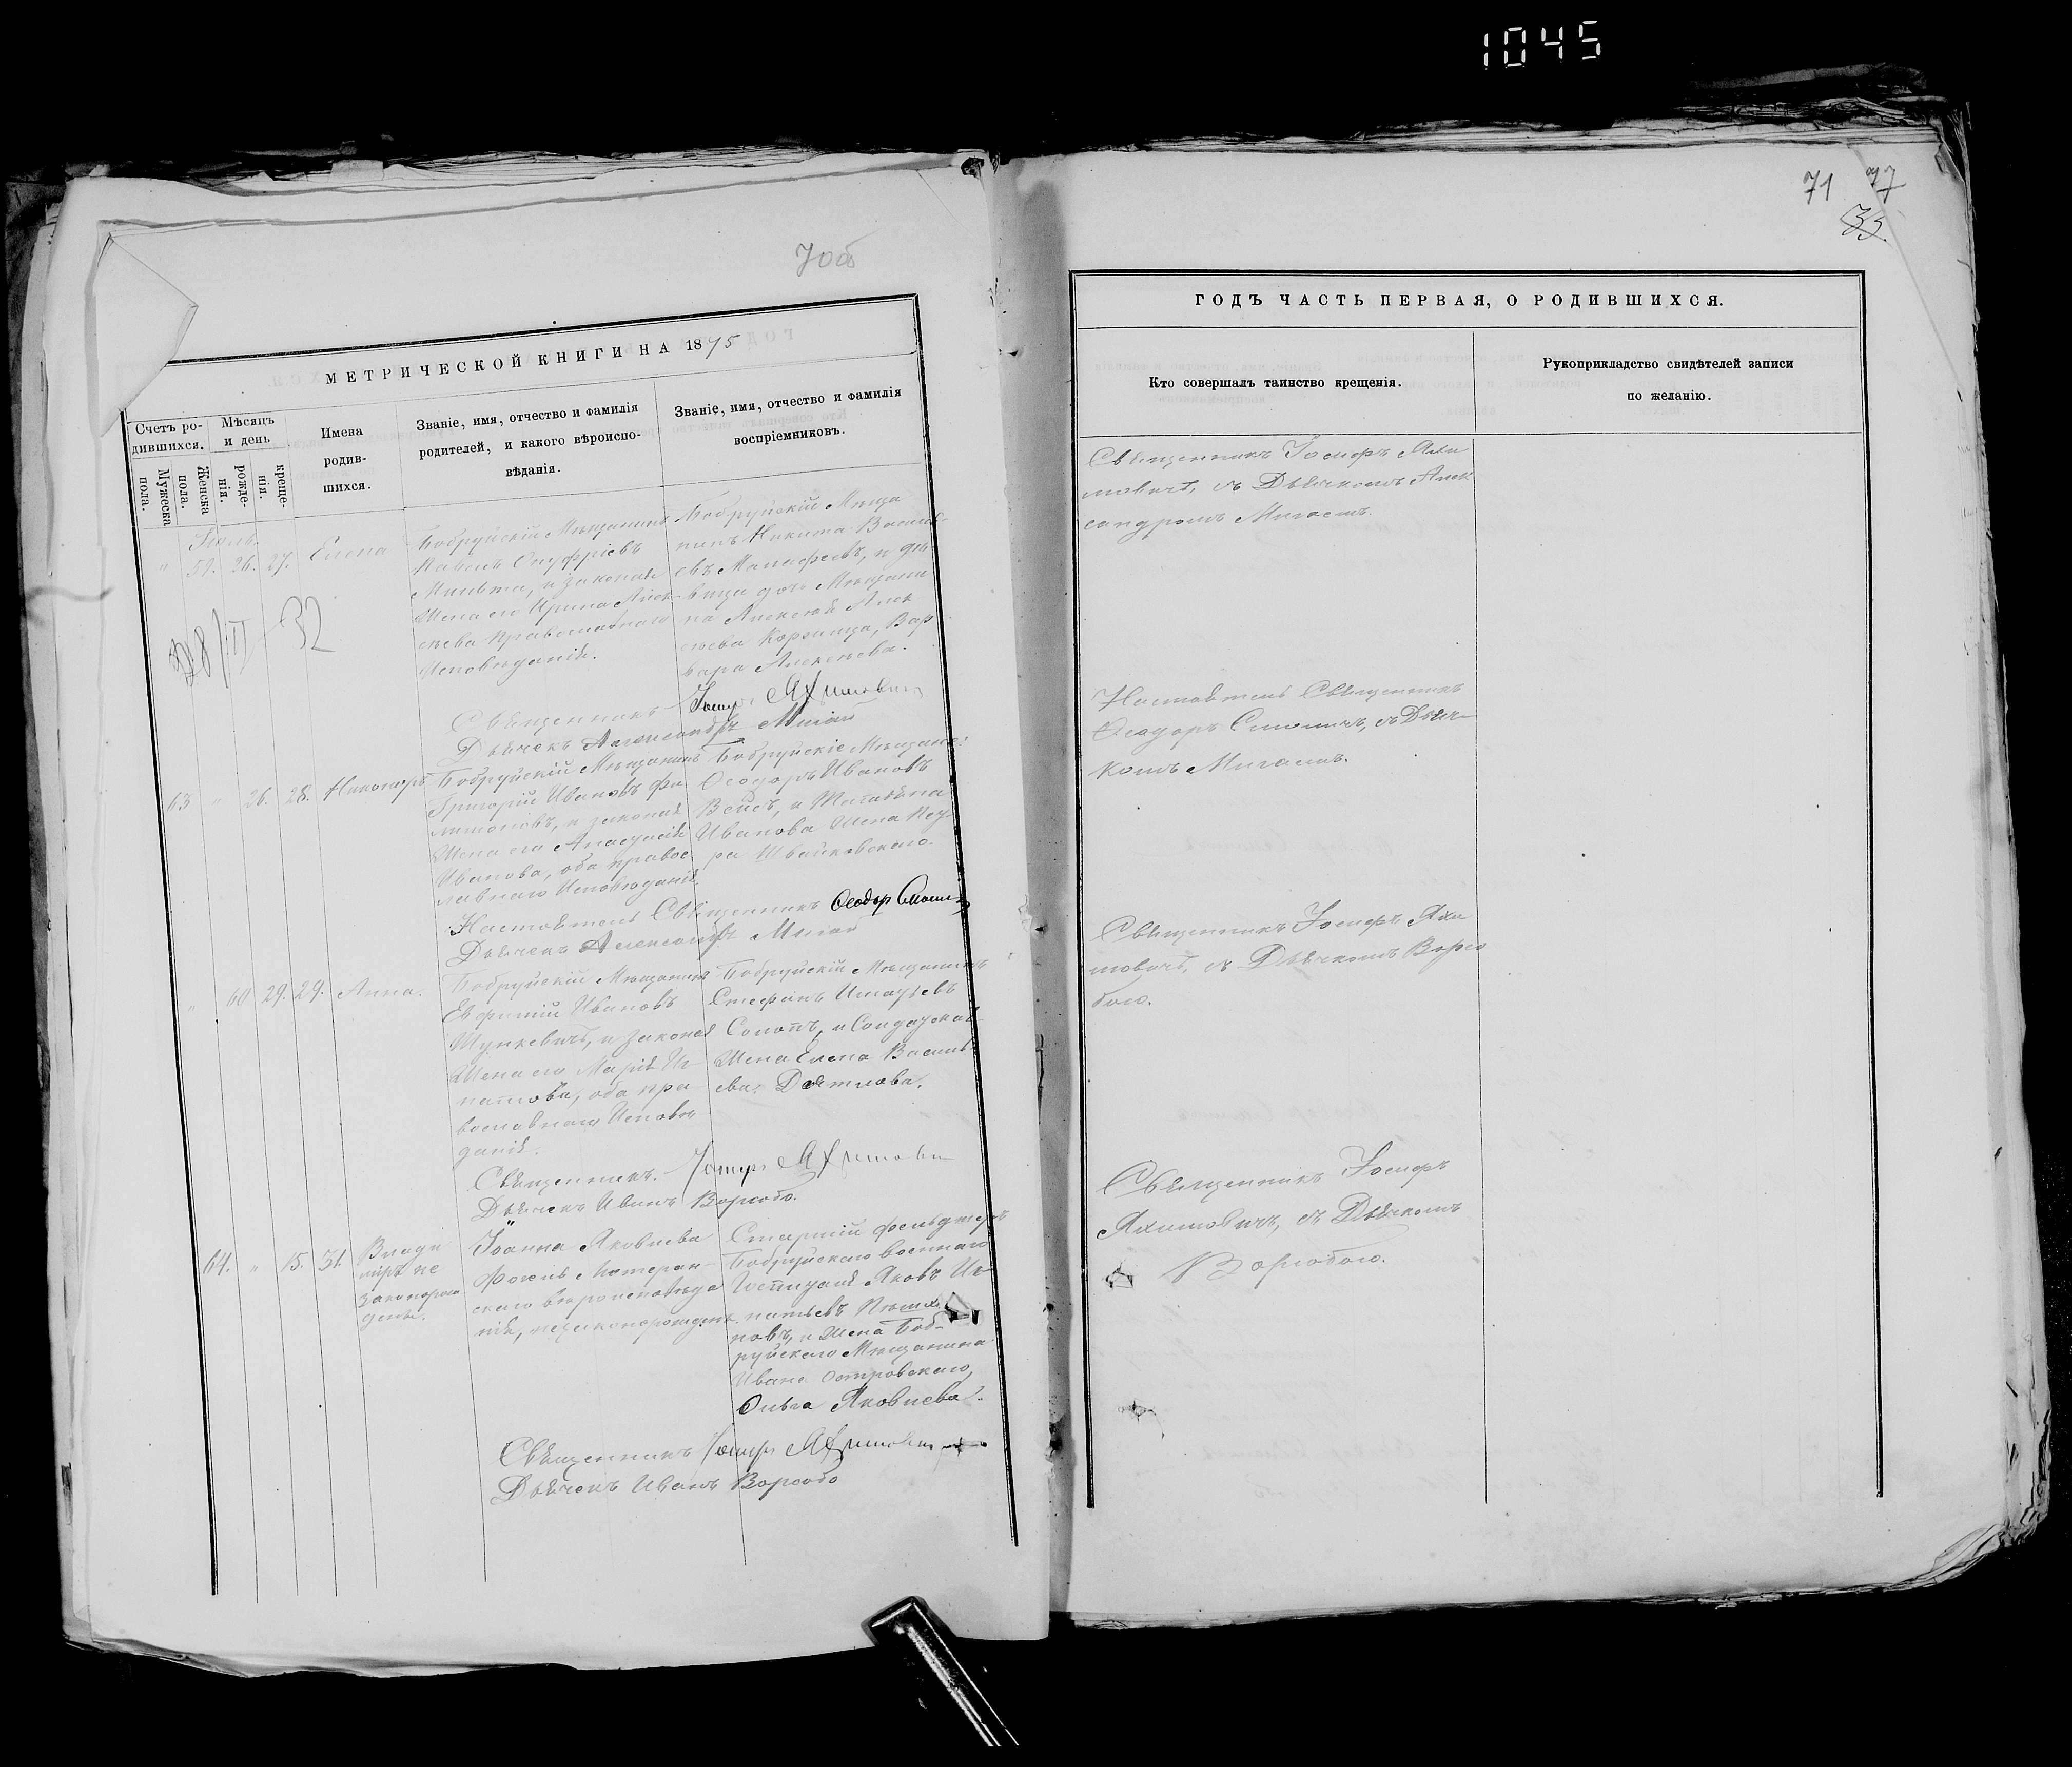 1045
70об
МЕТРИЧЕСКОЙ КНИГИ НА 1875
Счетъ ро-
дившихся.
Мужеска
пола.
Женска
пола.
Мѣсяцъ
и день
рожде-
нія.
креще-
нія.
Имена
родив-
шихся.
Званіе, имя, отчество и фамилія
родителей, и какого вѣроиспо-
вѣданія.
Званіе, имя, отчество и фамилія
воспріемниковъ.
Іюль.
" 59. 26. 27. Елена
Бобруйскій Мѣщанинъ
Павелъ Онуфріевъ
и законая
Жена его Ирина Алек-
сѣева Православнаго
Исповѣданія.
Бобруйскій Мѣща
нинъ Никита Василь-
евъ и дѣ-
вица дочь Мѣщани
на Алексѣя Алек
сѣева Вар
вара Алексѣева.
32
Священникъ Іосифъ Яхимовичъ
Дьячекъ Александръ Мигай
63 " 26. 28. Никаноръ
Бобруйскій Мѣщанинъ
Григорій Ивановъ Фи
лимоновъ, и законая
Жена его Анастасія
Иванова, оба правос
лавнаго Исповѣданія,
Бобруйскіе Мѣщане:
Ѳеодоръ Ивановъ
Вейсъ, и Татіана
Иванова Жена
Швайковскаго.
Настоятель Священникъ Ѳеодоръ Смоличъ
Дьячекъ Александръ Мигай
" 60 29. 29. Анна.
Бобруйскій Мѣщанинъ
Евфимій Ивановъ
Шункевичъ, и законая
Жена его Марія Иг-
натова, оба пра-
вославнаго Исповѣ
данія.
Бобруйскій Мѣщанинъ
Стефанъ
и Солдатская
Жена Елена Василь-
ева Дятлова.
Священникъ Іосифъ Яхимовичъ
Дьячекъ Иванъ Ворсобо.
64. " 15. 31.
Влади
міръ не
законорож
денъ.
Іоанна Яковлева
Фогель Лютеран-
скаго вѣроисповѣда
нія, незаконорожден.
Старшій фельдшеръ
Бобруйскаго военнаго
Госпиталя Яковъ Иг-
натьевъ
новъ, и Жена Боб-
руйскаго Мѣщанина
Ивана Островскаго,
Ольга Яковлева.
Священникъ Іосифъ Яхимовичъ
Дьячекъ Иванъ Ворсобо
71 77
33.
ГОДЪ ЧАСТЬ ПЕРВАЯ, О РОДИВШИХСЯ.
Кто совершалъ таинство крещенія.
Рукоприкладство свидѣтелей записи
по желанію.
Священникъ Іосифъ Яхи
мовичъ, съ Дьячкомъ Алек
сандромъ Мигаемъ.
Настоятель Священникъ
Ѳеодоръ Смоличъ, съ Дьяч-
комъ Мигаемъ.
Священникъ Іосифъ Яхи
мовичъ, съ Дьячкомъ Ворсо
бою.
Священникъ Іосифъ
Яхимовичъ, съ Дьячкомъ
Ворсобою.